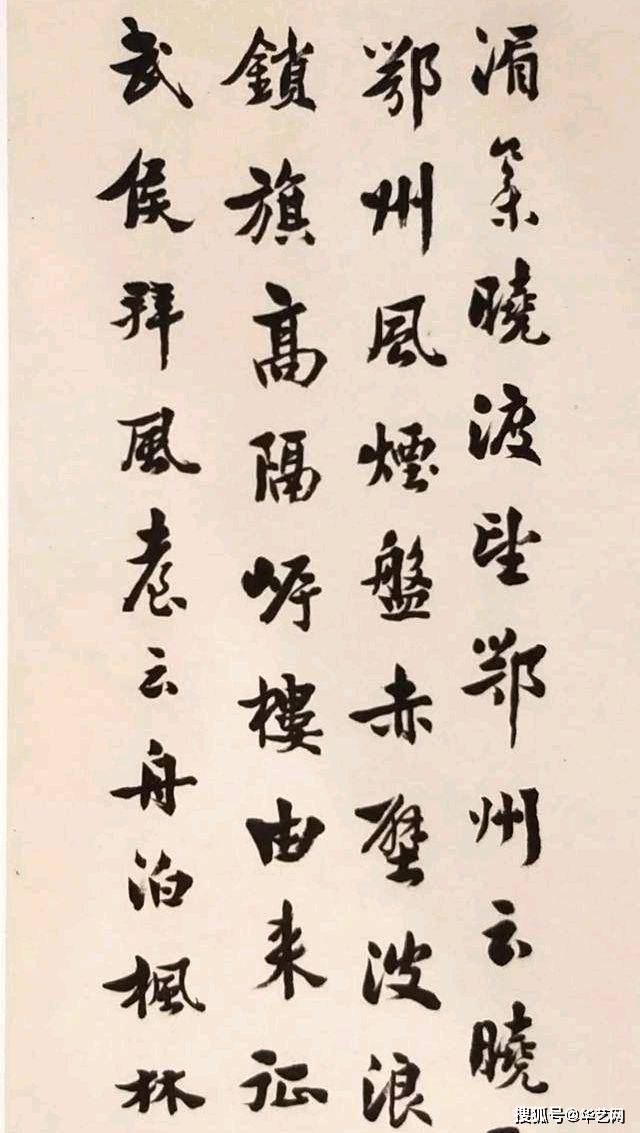 湄菉曉渡望鄂州云曉
鄂州風煙盤赤壁波浪
鎖旗高隔㟁樓由来征
武侯拜風臺云舟泊楓林
搜狐号@华艺网